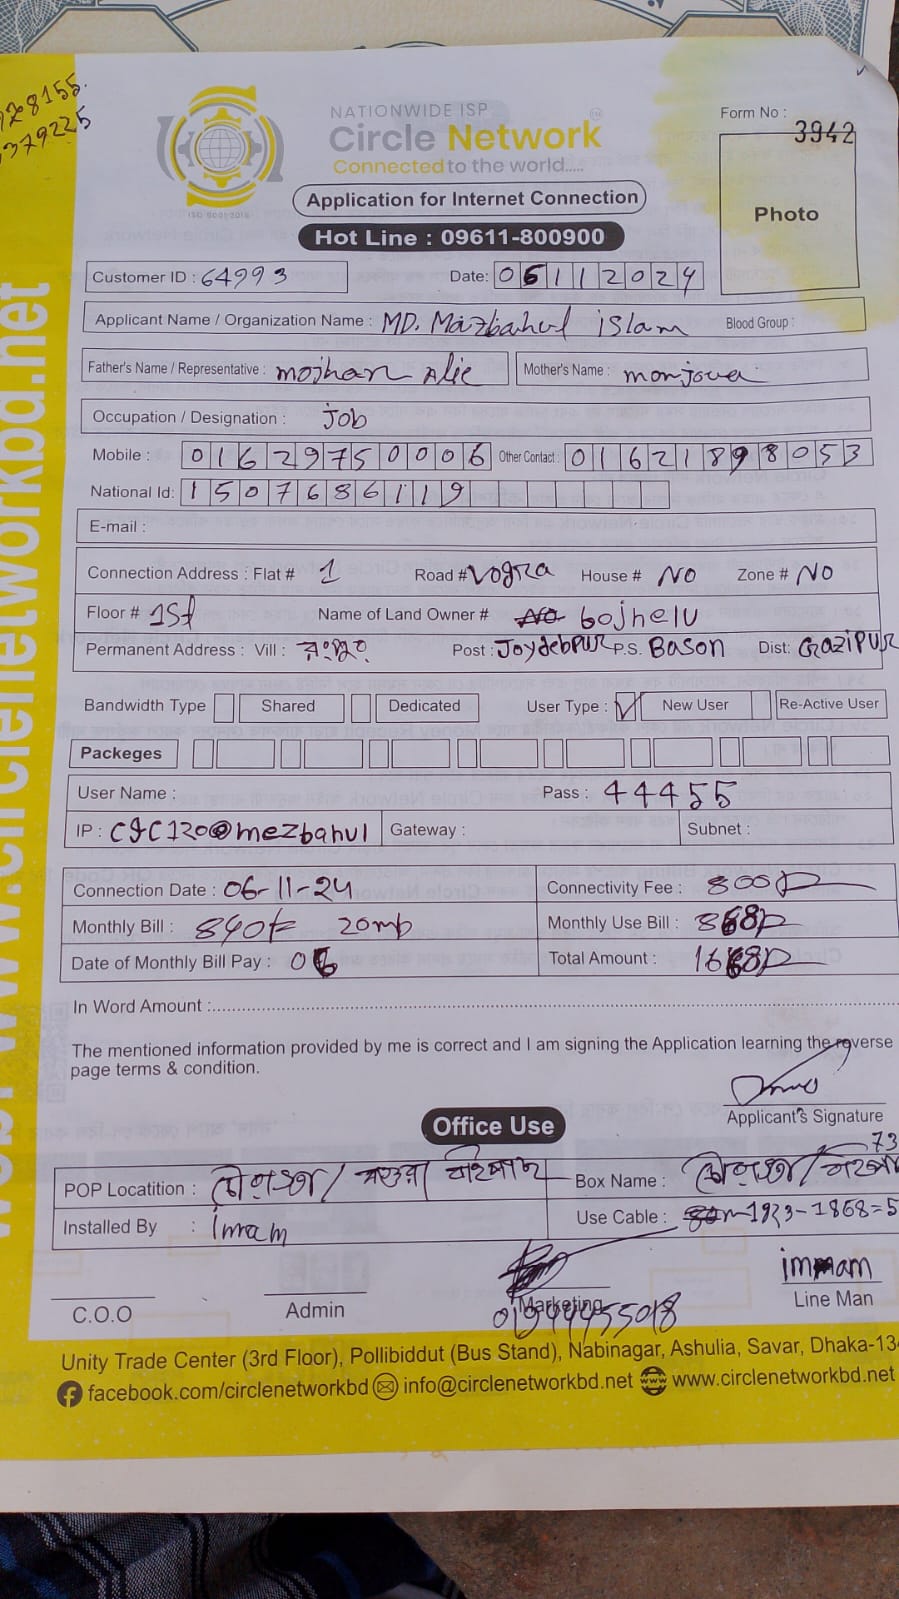 NATIONWIDE ISP
Circle Network
Connected to the world.....
ISO 9001:2015
Form No : 3942
Photo
Application for Internet Connection
Hot Line : 09611-800900
Customer ID : 64993 Date: 06112024
Applicant Name / Organization Name : MD. Mazbahul islam Blood Group :
Father's Name / Representative : mojhar Alie Mother's Name :
Occupation / Designation : Job
Mobile : 01629750006 Other Contact : 01621898053
National Id: 1507686119
E-mail :
Connection Address : Flat # 1 Road # Vogra House # NO Zone # NO
Floor # 1st Name of Land Owner #
Permanent Address : Vill : Post : Joydebpur P.S. Bason Dist: Gazipur
Bandwidth Type Shared Dedicated User Type : New User Re-Active User
Packeges
User Name : Pass : 44455
IP : CIC120@mezbahul Gateway : Subnet :
Connection Date : 06-11-24 Connectivity Fee : 800
Monthly Bill : 840tk 20mb Monthly Use Bill : 868
Date of Monthly Bill Pay : 06 Total Amount : 1668
In Word Amount :
The mentioned information provided by me is correct and I am signing the Application learning the reverse
page terms & condition.
Applicant's Signature
Office Use
POP Locatition : Box Name :
Installed By : imam Use Cable : 1923-1868=5
C.O.O Admin Marketing Line Man
Unity Trade Center (3rd Floor), Pollibiddut (Bus Stand), Nabinagar, Ashulia, Savar, Dhaka-13
facebook.com/circlenetworkbd info@circlenetworkbd.net www.circlenetworkbd.net
www.circlenetworkbd.net